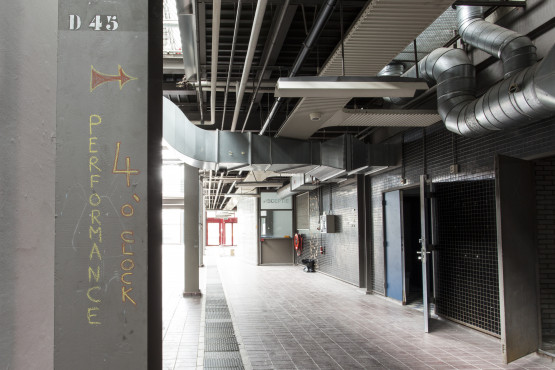 D 45
PERFORMANCE
4 o'CLOCK